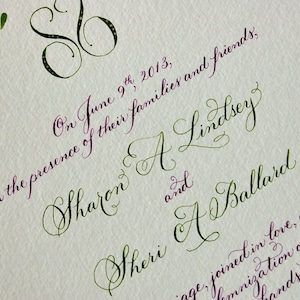 S S
On June 9th, 2013,
the presence of their families and friends,
Sharon A Lindsey
and
Sheri A Ballard
joined in love,